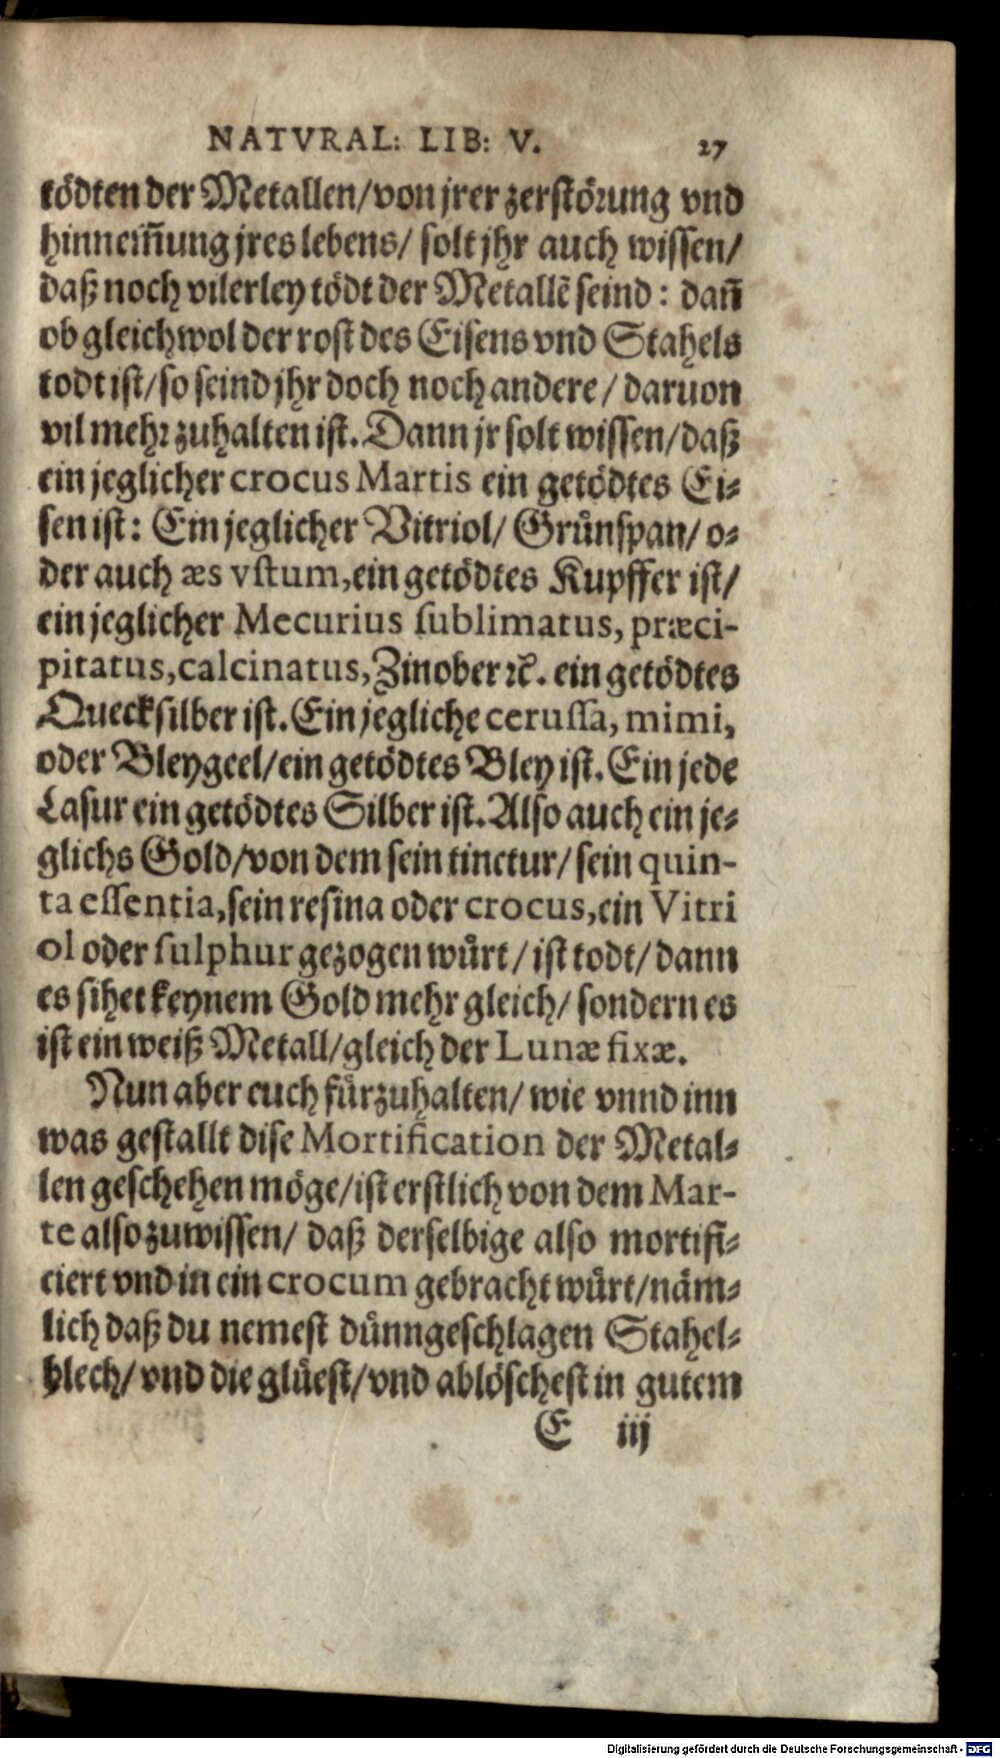 NATVRAL: LIB: V. 27
tödten der Metallen/von jrer zerstörung vnd
hinnem̃ung jres lebens/ solt jhr auch wissen/
daß noch vilerley tödt der Metallẽ seind: dañ
ob gleichwol der rost des Eisens vnd Stahels
todt ist/so seind jhr doch noch andere/ daruon
vil mehr zuhalten ist. Dann jr solt wissen/daß
ein jeglicher crocus Martis ein getödtes Ei⸗
sen ist: Ein jeglicher Vitriol/ Grůnspan/ o⸗
der auch æs vstum,ein getödtes Kupffer ist/
ein jeglicher Mecurius sublimatus, præci-
pitatus,calcinatus,Zinober ꝛc̃. ein getödtes
Quecksilber ist. Ein jegliche cerussa, mimi,
oder Bleygeel/ein getödtes Bley ist. Ein jede
Lasur ein getödtes Silber ist. Also auch ein je⸗
glichs Gold/von dem sein tinctur/ sein quin-
ta essentia,sein resina oder crocus,ein Vitri
ol oder sulphur gezogen wůrt/ ist todt/ dann
es sihet keynem Gold mehr gleich/ sondern es
ist ein weiß Metall/gleich der Lunæ fixæ.
Nun aber euch fürzuhalten/ wie vnnd inn
was gestallt dise Mortification der Metal⸗
len geschehen möge/ist erstlich von dem Mar-
te also zuwissen/ daß derselbige also mortifi⸗
ciert vnd in ein crocum gebracht wůrt/näm⸗
lich daß du nemest důnngeschlagen Stahel⸗
blech/ vnd die glüest/vnd ablöschest in gutem
E iij
Digitalisierung gefördert durch die Deutsche Forschungsgemeinschaft - DFG